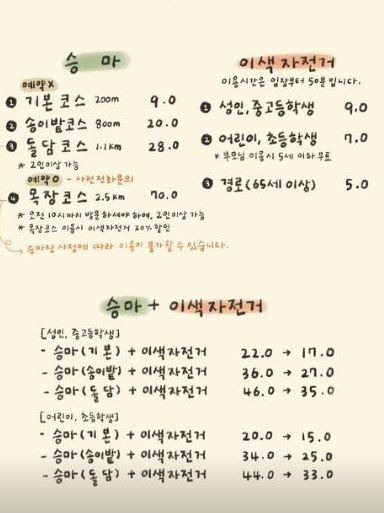 승마
예약X
❶ 기본코스 200m 9.0
❷ 송이밭코스 800m 20.0
❸ 돌담코스 1.1km 28.0
* 2인이상 가능
예약O - 사전전화문의
❹ 목장코스 2.5km 70.0
* 오전 10시까지 방문하셔야 하며, 2인이상 가능
* 목장코스 이용시 이색자전거 20% 할인
승마장 사정에 따라 이용이 불가할 수 있습니다.
이색자전거
이용시간은 입장부터 50분 입니다.
❶ 성인,중고등학생 9.0
❷ 어린이, 초등학생 7.0
* 부모님 이용시 5세 이하 무료
❸ 경로(65세이상) 5.0
승마 + 이색자전거
[성인, 중고등학생]
- 승마(기본) + 이색자전거 22.0 → 17.0
- 승마(송이밭) + 이색자전거 36.0 → 27.0
- 승마(돌담) + 이색자전거 46.0 → 35.0
[어린이, 초등학생]
- 승마(기본) + 이색자전거 20.0 → 15.0
- 승마(송이밭) + 이색자전거 34.0 → 25.0
- 승마(돌담) + 이색자전거 44.0 → 33.0